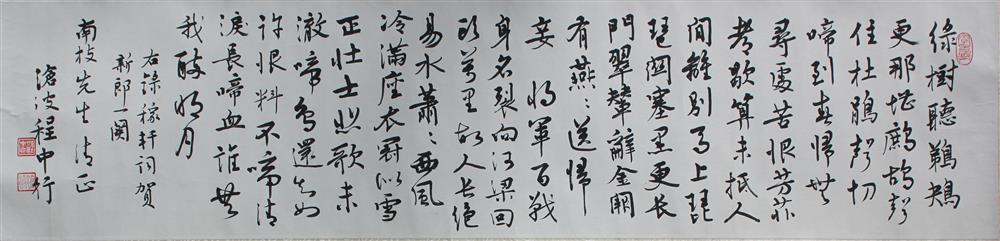 綠樹聽鵜鴂
更那堪鷓鴣聲
住杜鵑聲切
啼到春歸無
尋處苦恨芳菲
都歇算未抵人
間離別馬上琵
琶關塞黑更長
門翠輦辭金闕
看燕〻送歸
妾 將軍百戰
身名裂向河梁回
頭萬里故人長絕
易水蕭〻西風
冷滿座衣冠似雪
正壯士悲歌未
徹啼鳥還知如
許恨料不啼清
淚長啼血誰共
我醉明月
右錄稼軒詞賀
新郎闋
南枝先生清正
滄波程中行